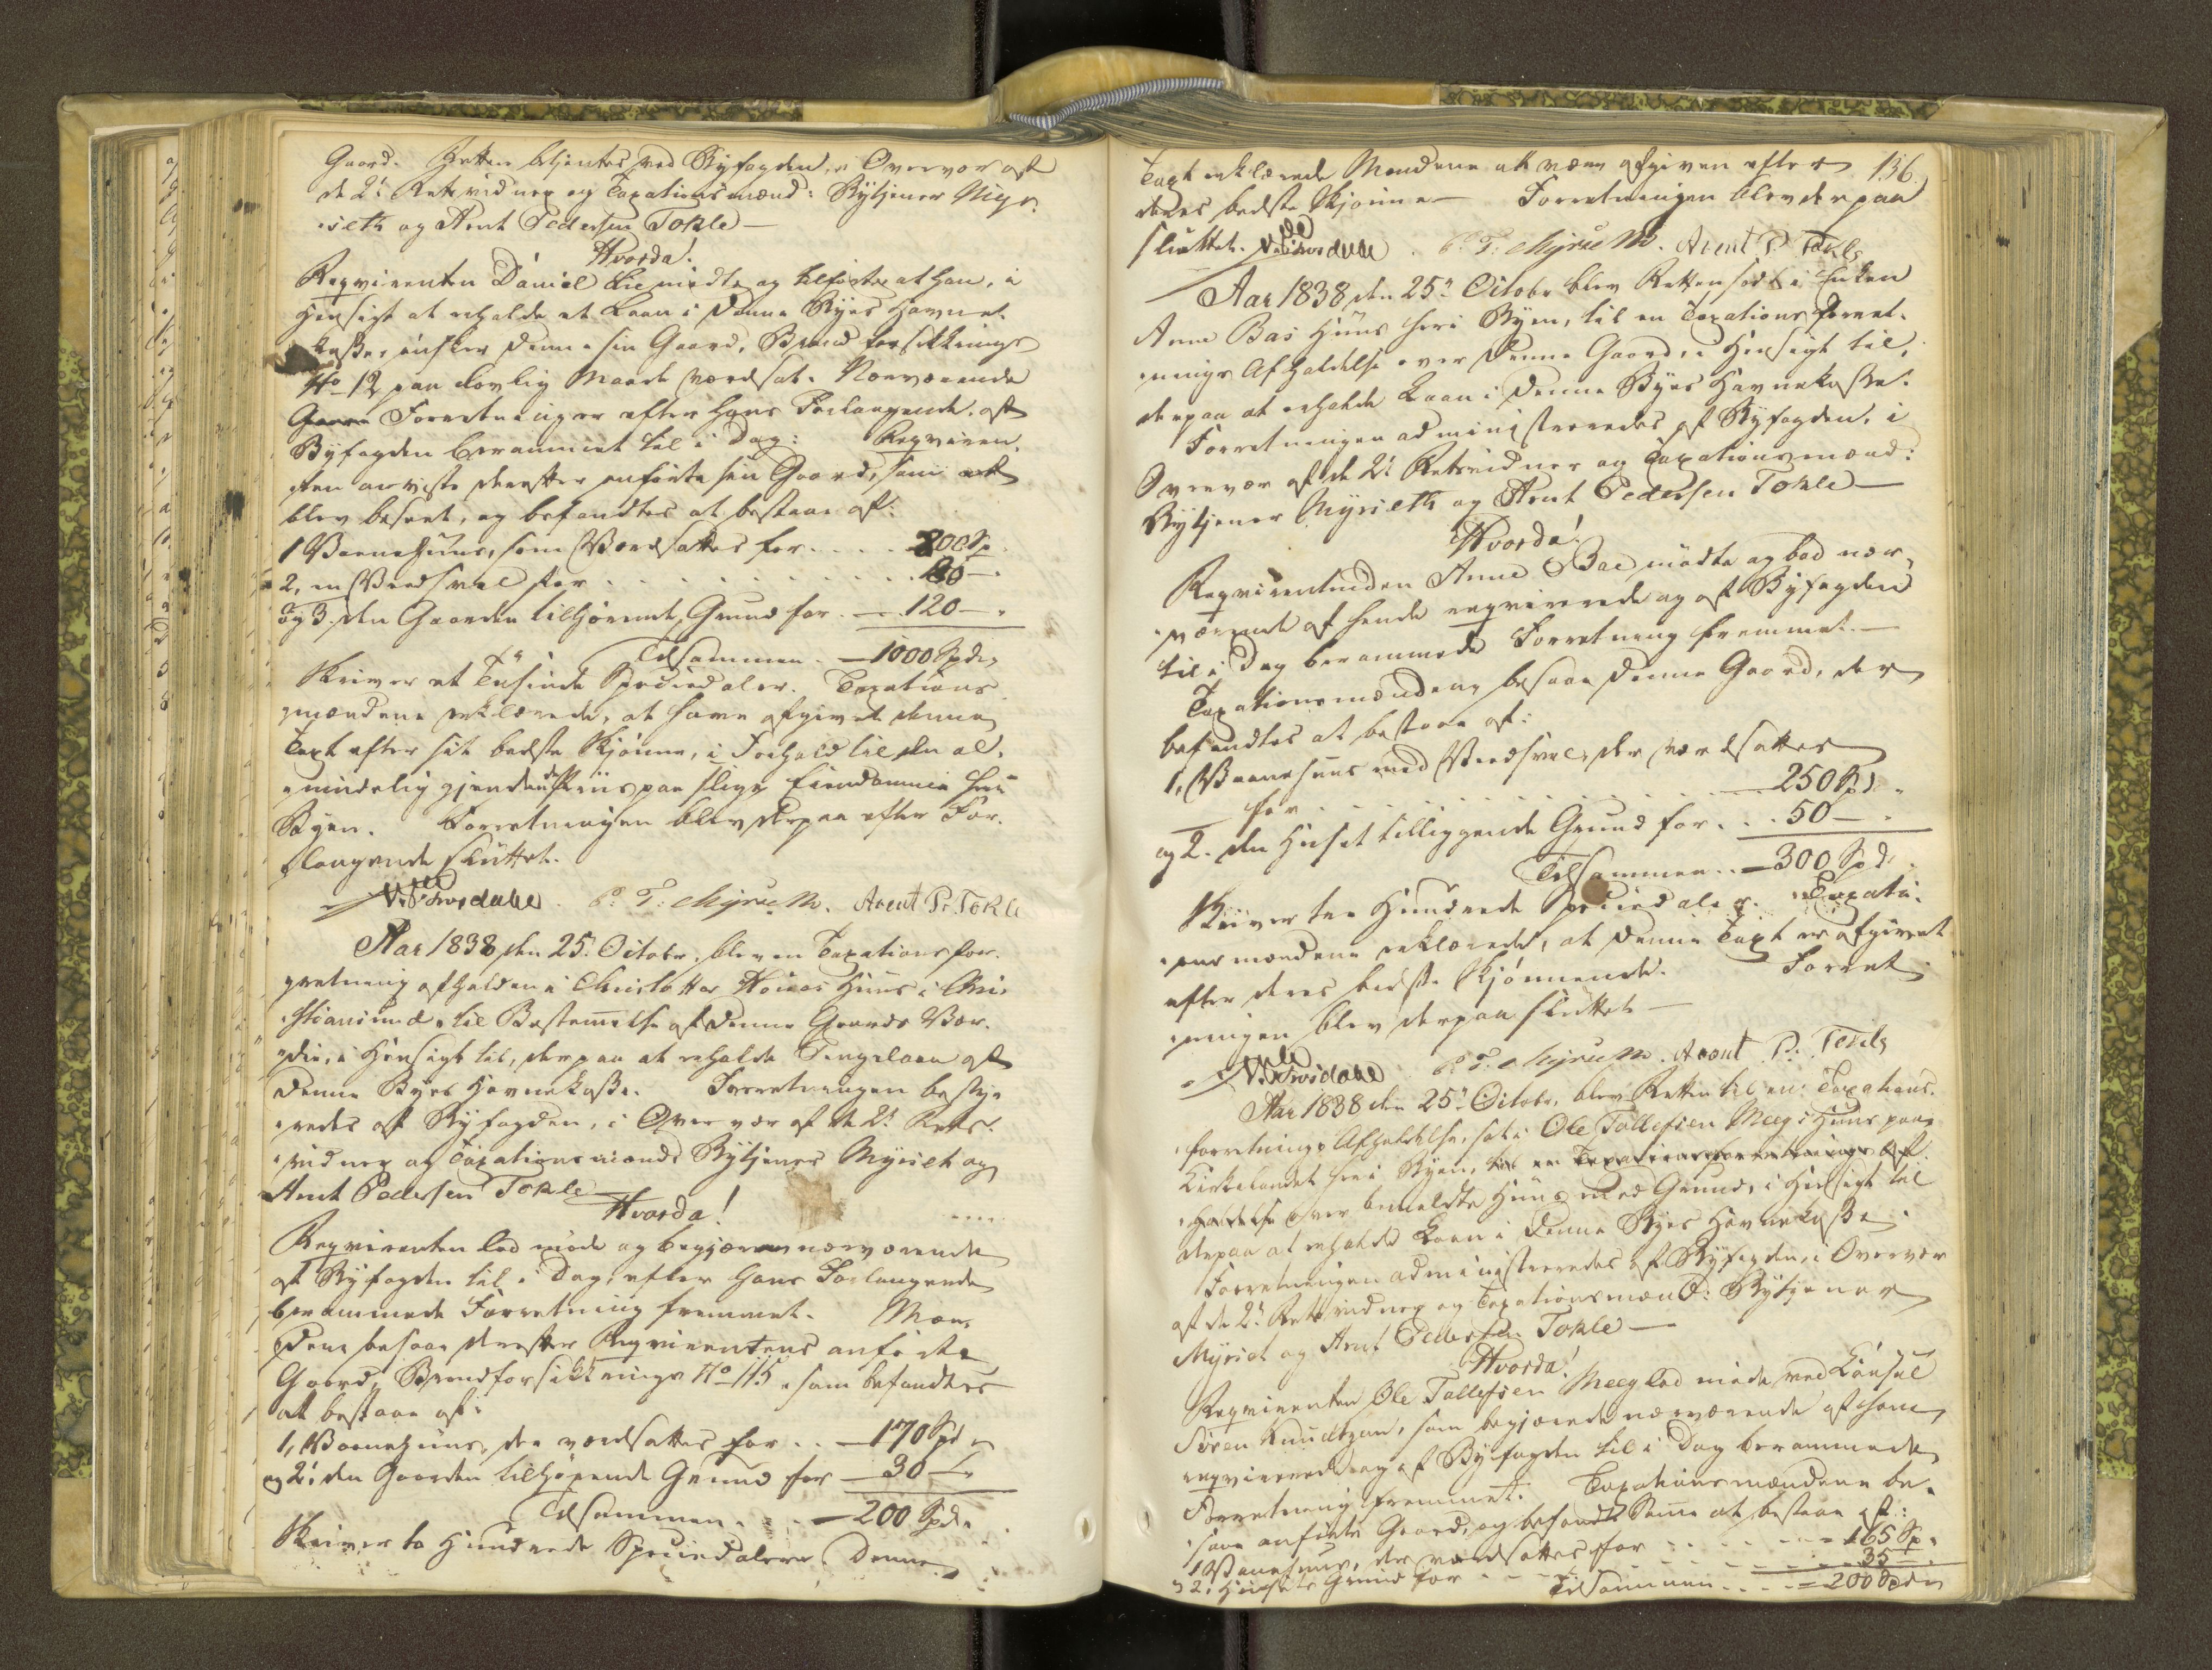 Gaard. Retten betjentes ved Byfogden, i Overvær af
de 2de Retsvidner og Taxationsmænd: Bytjener Myr-
seth og Arnt Pedersen Tokle —
Hvorda!
Reqvirenten Daniel Lie mødte og tilførte at han, i
Hensigt at erholde et Laan i denne Byes Havne-
kasse, ønsker denne sin Gaard, Brandforsikkrings
No 12 paa lovlig Maade værdsat. Nærværende
Forretning er efter hans Forlangende, af
Byfogden berammet til i Dag: Reqviren-
ten anviste derefter anførte sin Gaard, som
blev beseet, og befandtes at bestaae af:
1 Vaanehuus, som Værdsattes for . . . . . 800 Sp
2, en Vedsval for . . . . . . . . . 80 —
og 3. den Gaarden tilhørende Grund for — 120 —
Tilsammen — 1000 Spdr
Skriver et Tusinde Speciedaler. Taxations-
mændene erklærede, at have afgivet denne
Taxt efter sit bedste Skjønne, i Forhold til den al-
mindelig gjeldende Priis paa slige Eiendomme her i
Byen. Forretningen blev derpaa efter For-
langende sluttet.
P. T. Myrseth. Arent P. Tokle
Aar 1838 den 25. Octobr. blev en Taxationsfor-
retning afholden i Christoffer Huus i Chri-
stiansund, til Bestemmelse af denne Gaards Vær-
die, i Hensigt til, derpaa at erholde Pengelaan af
denne Byes Havnekasse. Forretningen besty-
redes af Byfogden, i Overvær af de 2de Rets-
vidner og Taxationsmænd Bytjener Myrset og
Arnt Pedersen Tokle
Hvorda!
Reqvirenten lod møde og begjære nærværende
af Byfogden til i Dag, efter hans Forlangende
berammede Forretning fremmet. Mæn-
dene besaae derefter Reqvirentens anførte
Gaard, Brandforsikkrings No 115, som befandtes
at bestaae af:
1, Vaanehuus, der værdsattes for . . — 170 Spd
og 2. den Gaarden tilhørende Grund for — 30 —
Tilsammen . . . — 200 Spdr
Skriver to Hundrede Speciedaler. Denne
136
Taxt erklærede Mændene at være afgiven efter
deres bedste Skjønne — Forretningen blev derpaa
sluttet. P. T. Myrseth. Arent P. Tokle
Aar 1838 den 25de Octobr blev Retten sadt i Enken
Anne Baes Huus her i Byen, til en Taxations Forret-
nings Afholdelse over denne Gaard, i Hensigt til,
derpaa at erholde Laan i denne Byes Havnekasse.
Forretningen administreredes af Byfogden, i
Overvær af de 2de Retsvidner og Taxationsmænd:
Bytjener Myrseth og Arnt Pedersen Tokle —
Hvorda!
Reqvirentinden Anne Bae mødte og bad nær-
værende af hende reqvirerede og af Byfogden
til i Dag berammede Forretning fremmet. —
Taxationsmændene besaae denne Gaard, der
befandtes at bestaae af:
1, Vaanehuus med Vedsval, der værdsattes
for . . . . . . . . . . . . 250 Spd
og 2. den Huset tilliggende Grund for . . . 50 —
Tilsammen . . — 300 Spd.
Skriver tre Hundrede Speciedaler. Taxati-
onsmændene erklærede, at denne Taxt er afgivet
efter deres bedste Skjønnende. Forret-
ningen blev derpaa sluttet —
P. T. Myrseth. Arent P. Tokle
Aar 1838 den 25de Octobr. blev Retten til en Taxations-
forretnings Afholdelse, sat i Ole Tollefsen Meeg's Huus paa
Kirkelandet her i Byen, til en Taxationsforretnings Af-
holdelse over bemeldte Huus med Grund, i Hensigt til
derpaa at erholde Laan i denne Byes Havnekasse.
Forretningen administreredes af Byfogden, i Overvær
af de 2de Retsvidner og Taxationsmænd: Bytjener
Myrset og Arnt Pedersen Tokle —
Hvorda!
Reqvirenten Ole Tollefsen Meeg lod møde ved Consul
Søren Knudtzon, som begjærede nærværende af ham
reqvirerede og af Byfogden til i Dag berammede
Forretning fremmet. Taxationsmændene be-
saae anførte Gaard, og befandt samme at bestaae af:
1 Vaanehuus, der værdsattes for . . . . . — 165 Sp.
2. Husets Grund for . . . . . 35
Tilsammen . . . . — 200 Spdr